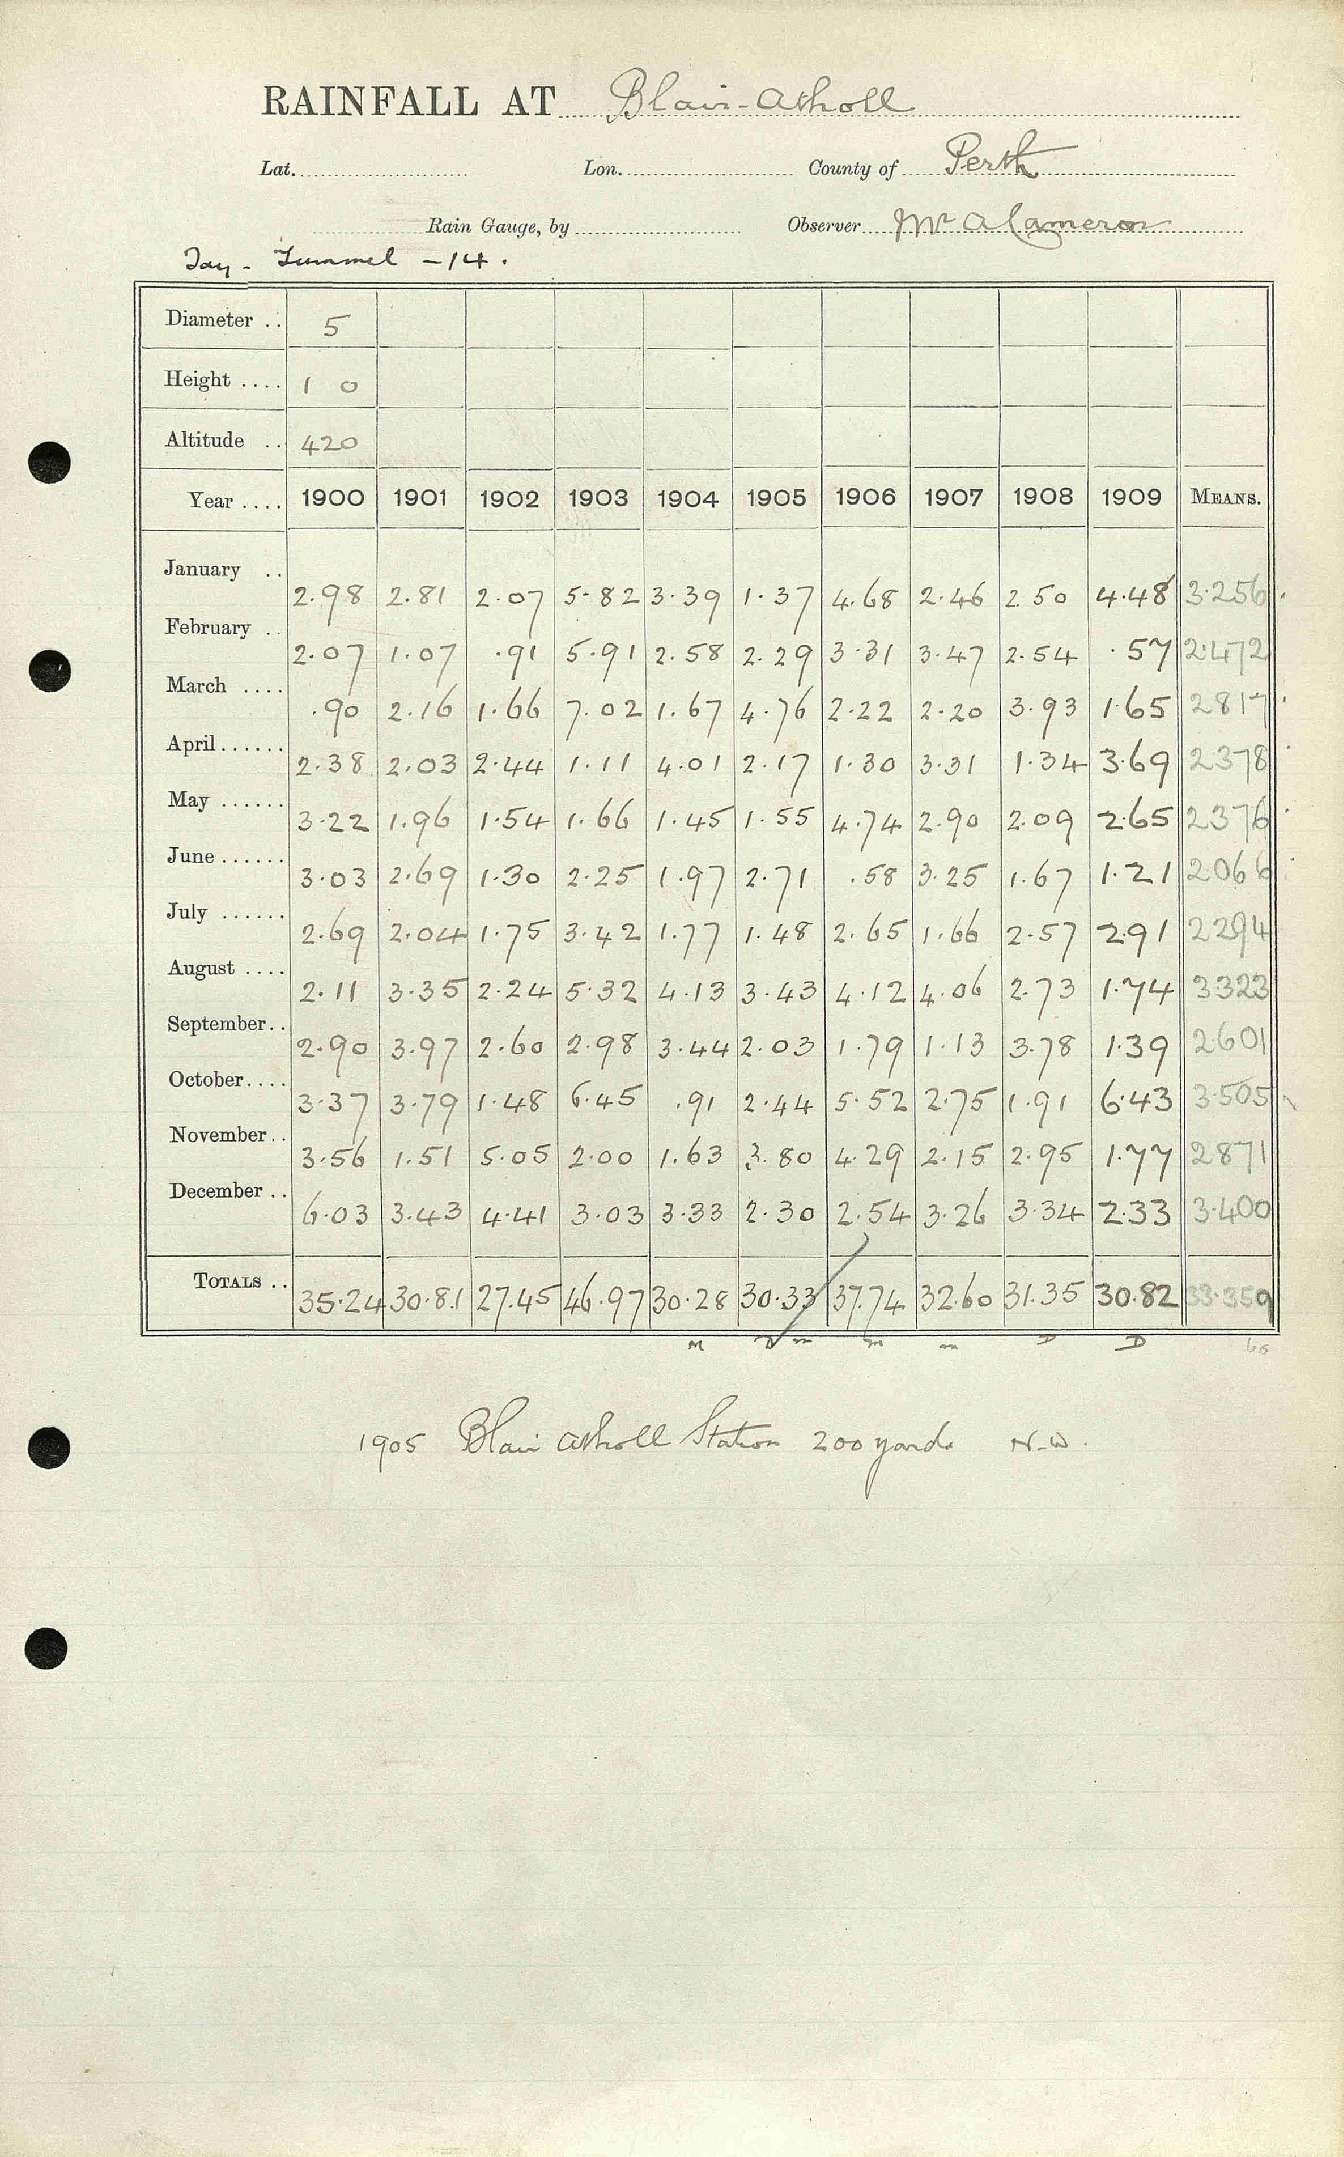 RAINFALL AT Blair-Atholl
Lat. Lon. County of Perth
Rain Gauge, by Observer Mr A Cameron
Tay - Tummel - 14.
Diameter .. 5
Height .... 1 0
Altitude .. 420
Year .... 1900 1901 1902 1903 1904 1905 1906 1907 1908 1909 MEANS.
January .. 2.98 2.81 2.07 5.82 3.39 1.37 4.68 2.46 2.50 4.48 3.256
February .. 2.07 1.07 .91 5.91 2.58 2.29 3.31 3.47 2.54 .57 2.472
March .... .90 2.16 1.66 7.02 1.67 4.76 2.22 2.20 3.93 1.65 2817
April...... 2.38 2.03 2.44 1.11 4.01 2.17 1.30 3.31 1.34 3.69 2378
May ...... 3.22 1.96 1.54 1.66 1.45 1.55 4.74 2.90 2.09 2.65 2376
June...... 3.03 2.69 1.30 2.25 1.97 2.71 .58 3.25 1.67 1.21 2066
July ...... 2.69 2.04 1.75 3.42 1.77 1.48 2.65 1.66 2.57 2.91 2294
August .... 2.11 3.35 2.24 5.32 4.13 3.43 4.12 4.06 2.73 1.74 3323
September.. 2.90 3.97 2.60 2.98 3.44 2.03 1.79 1.13 3.78 1.39 2601
October.... 3.37 3.79 1.48 6.45 .91 2.44 5.52 2.75 1.91 6.43 3.505
November.. 3.56 1.51 5.05 2.00 1.63 3.80 4.29 2.15 2.95 1.77 2871
December .. 6.03 3.43 4.41 3.03 3.33 2.30 2.54 3.26 3.34 2.33 3.400
TOTALS .. 35.24 30.81 27.45 46.97 30.28 30.33 37.74 32.60 31.35 30.82 33.359
M D m m m D D
1905 Blair Atholl Station 200 yards N.W.